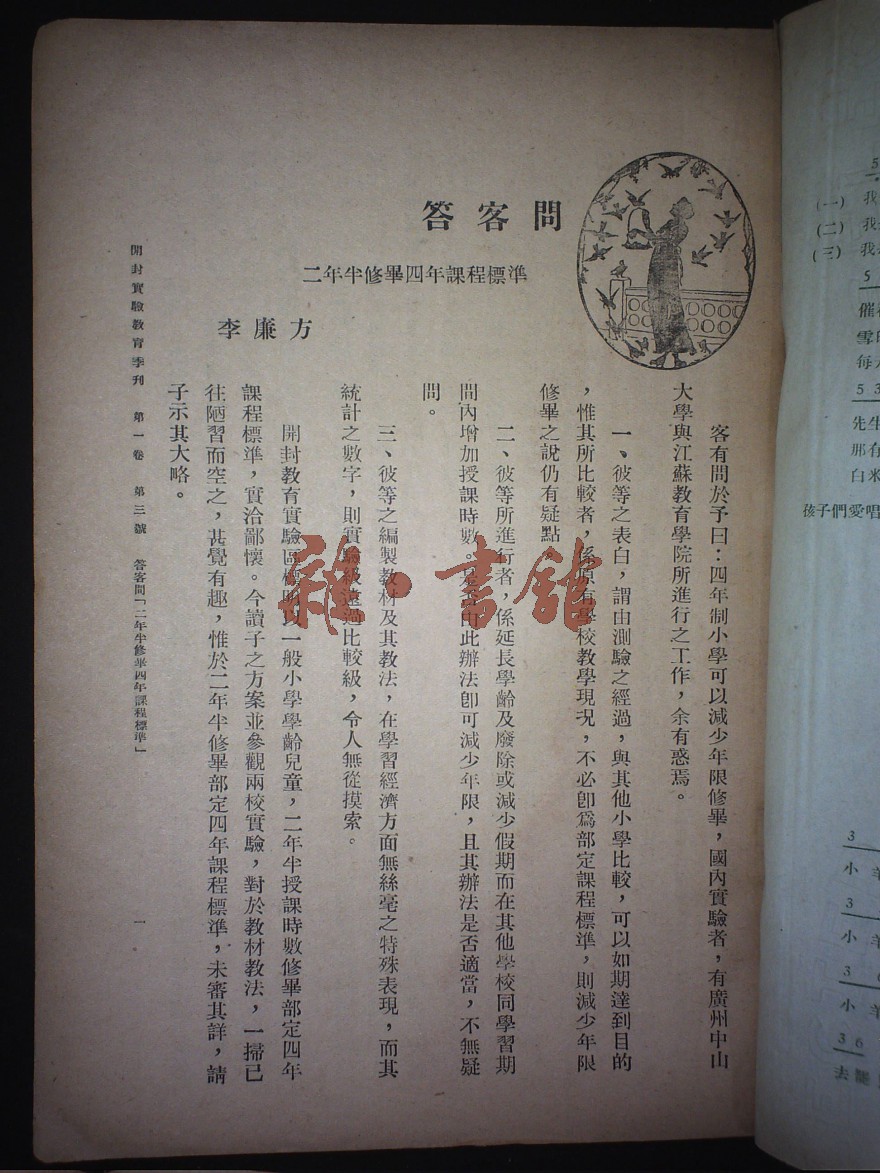 答客問
二年半修畢四年課程標準
李廉方
客有問於予曰：四年制小學可以減少年限修畢，國內實驗者，有廣州中山
大學與江蘇教育學院所進行之工作，余有惑焉。
一、彼等之表白，謂由測驗之經過，與其他小學比較，可以如期達到目的
，惟其所比較者，係原有學校教學現況，不必卽爲部定課程標準，則減少年限
修畢之說仍有疑點。
二、彼等所進行者，係延長學齡及廢除或減少假期而在其他學校同學習期
間內增加授課時數。是否由此辦法卽可減少年限，且其辦法是否適當，不無疑
問。
三、彼等之編製教材及其教法，在學習經濟方面無絲毫之特殊表現，而其
統計之數字，則實驗級遠過比較級，令人無從摸索。
開封教育實驗區標明以一般小學學齡兒童，二年半授課時數修畢部定四年
課程標準，實洽鄙懷。今讀子之方案並參觀兩校實驗，對於教材教法，一掃已
往陋習而空之，甚覺有趣，惟於二年半修畢部定四年課程標準，未審其詳，請
子示其大略。
開封實驗教育季刊 第一卷 第三號 答客問「二年半修畢四年課程標準」 一
雜·書館
5
(一) 我
(二) 我
(三) 我
5
催
雪
每
5 3
先生
那有
白米
孩子們愛唱
3
小 羊
3
小 羊
3 6
小 羊
3 6
去